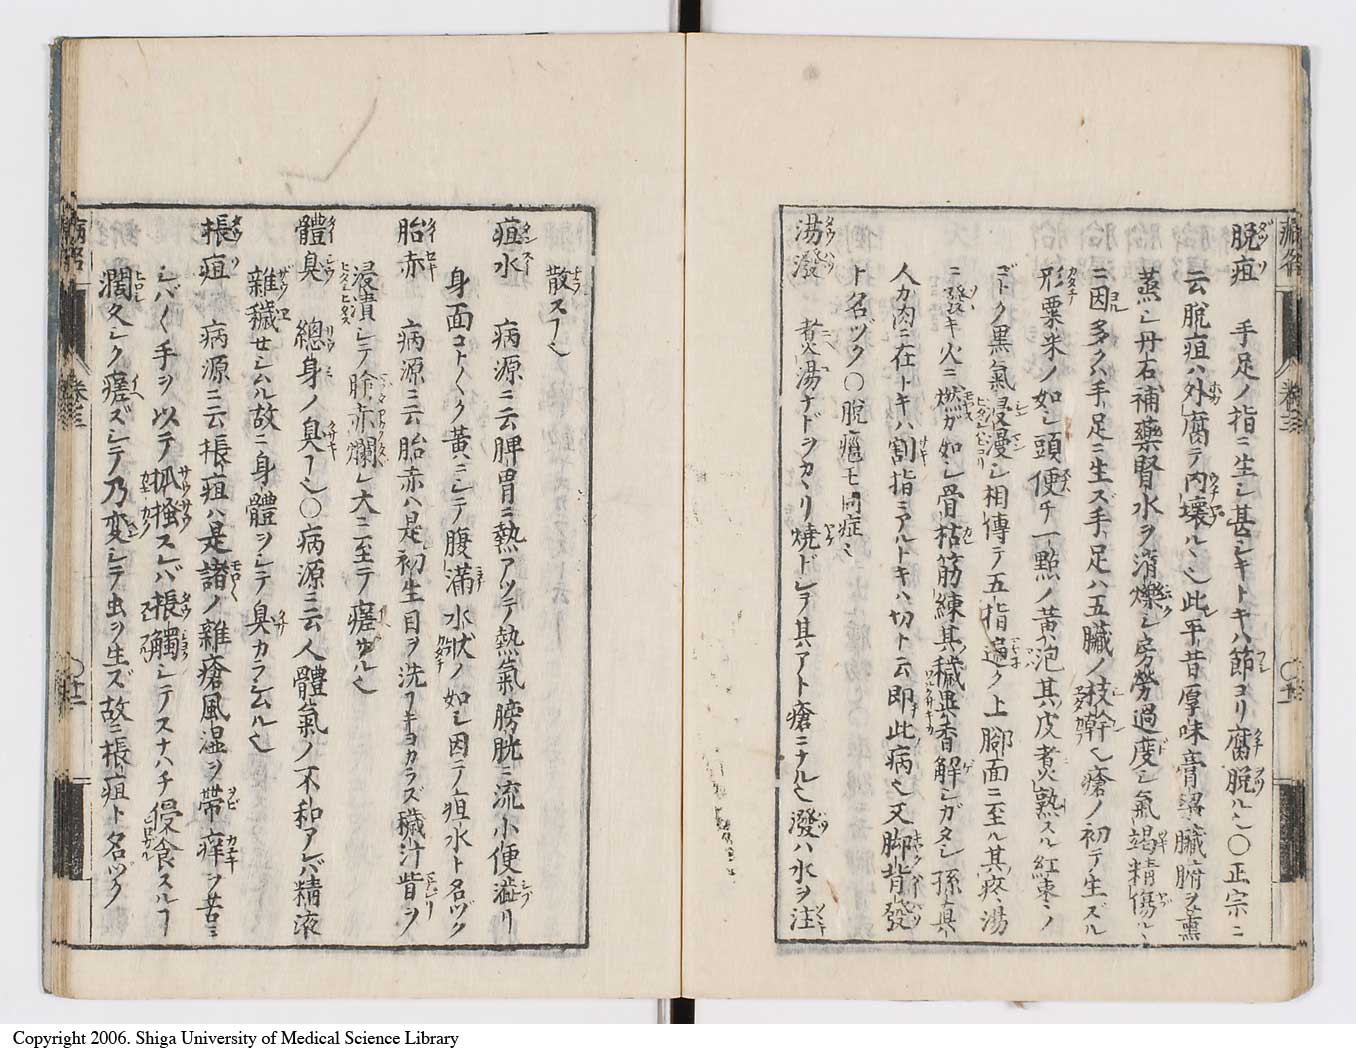 脱疽 手足ノ指ニ生シ甚シキトキハ節ヨリ腐脱ルヽ〇正宗ニ
云脱疽ハ外腐テ内壊ルヽ也此平昔厚味膏粱臓腑ヲ薫
蒸シ丹石補藥腎水ヲ消爍シ房勞過度シ氣竭精傷ルヽ
ニ因多クハ手足ニ生ズ手足ハ五臓ノ枝幹也瘡ノ初テ生ズル
形粟米ノ如シ頭便チ一點ノ黄泡其皮煮熟スル紅棗ノ
ゴトク黒氣侵漫シ相傳テ五指遍ク上脚面ニ至ル其疼湯
ニ發キ火ニ燃ガ如シ骨枯筋練其穢臭香解シガタシ孫真
人カ肉ニ在トキハ割指ニアルトキハ切ト云即此病也又脚背發
ト名ヅク〇脱癰モ同症也
湯潑 煮湯ナドヲカヽリ焼ドシヲ其アト瘡ニナル也潑ハ水ヲ注
散スヿ也
疸水 病源ニ云脾胃ニ熱アツテ熱氣膀胱ニ流小便澁リ
身面コトゴトク黄ニシテ腹満水状ノ如シ因テ疸水ト名ヅク
胎赤 病源ニ云胎赤ハ是初生目ヲ洗フキヨカラズ穢汁眥ヲ
浸漬シテ瞼赤爛レ大ニ至テ瘥ザル也
體臭 總身ノ臭ヿ也〇病源ニ云人體氣ノ不和アレバ精液
雑穢セシムル故ニ身體ヲシテ臭カラシムル也
棖疽 病源ニ云棖疽ハ是諸ノ雑瘡風湿ヲ帶痒ヲ苦ミ
シバ〱手ヲ以テ抓搔スレバ棖觸シテスナハチ侵食スルヿ
濶久シク瘥ズシテ乃変シテ虫ヲ生ズ故ニ棖疽ト名ヅク
病名 巻三
Copyright 2006. Shiga University of Medical Science Library